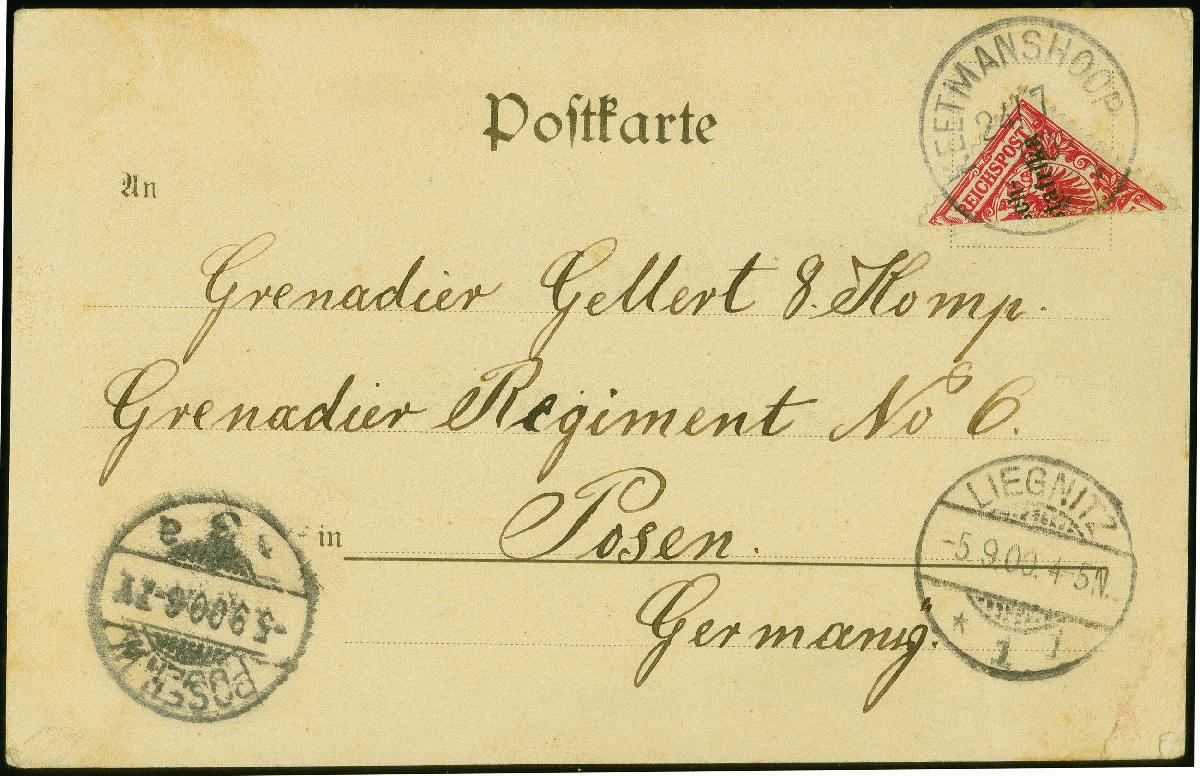 Postkarte
KEETMANSHOOP
24/7
REICHSPOST
An
Grenadier Gellert 8. Komp.
Grenadier Regiment No 6.
in Posen.
Germany.
LIEGNITZ
-5.9.00.4-5N.
* 1 j
POSEN
-5.9.00.6-7V
3 a